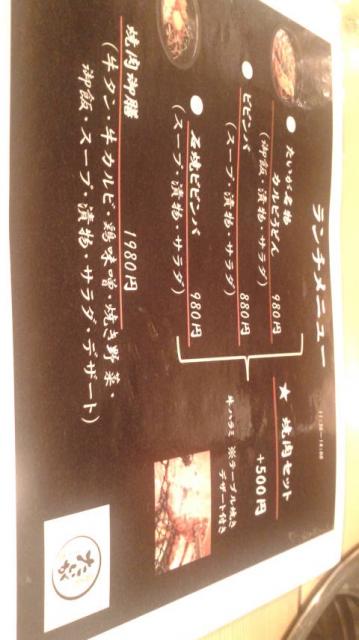 ランチメニュー
11:30～14:00
● たいが名物
カルビうどん 980円
(御飯・漬物・サラダ)
● ビビンバ 880円
(スープ・漬物・サラダ)
● 石焼ビビンバ 980円
(スープ・漬物・サラダ)
★ 焼肉セット
+500円
牛ハラミ ※テーブル焼き
デザート付き
焼肉御膳 1980円
(牛タン・牛カルビ・鶏味噌・焼き野菜・
御飯・スープ・漬物・サラダ・デザート)